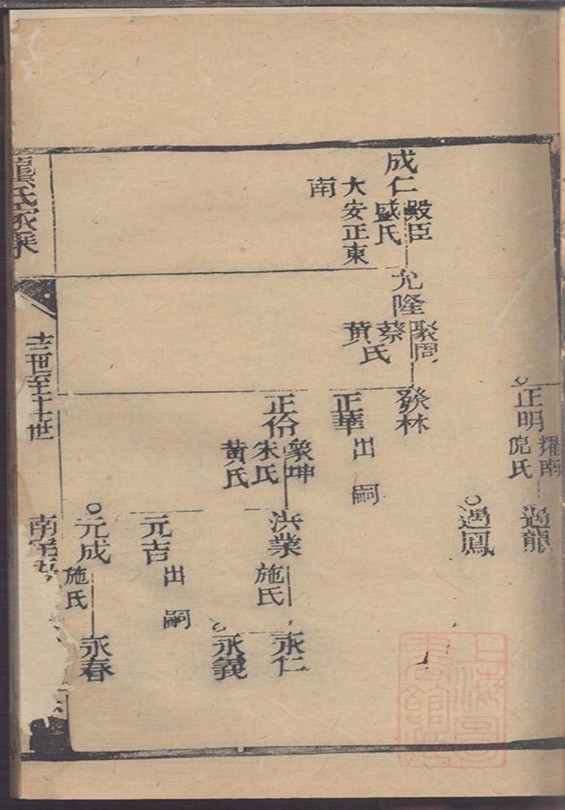 成仁
殿臣
盛氏
大安正東
南
允隆
聚周
蔡氏
黃
正明
耀南
倪氏
過龍
過鳳
發林
正華
出嗣
正份
象坤
朱氏
黃氏
洪業
施氏
永仁
永義
元吉
出嗣
元成
施氏
永春
龔氏家乘
世至
世
南
上海圖書館藏